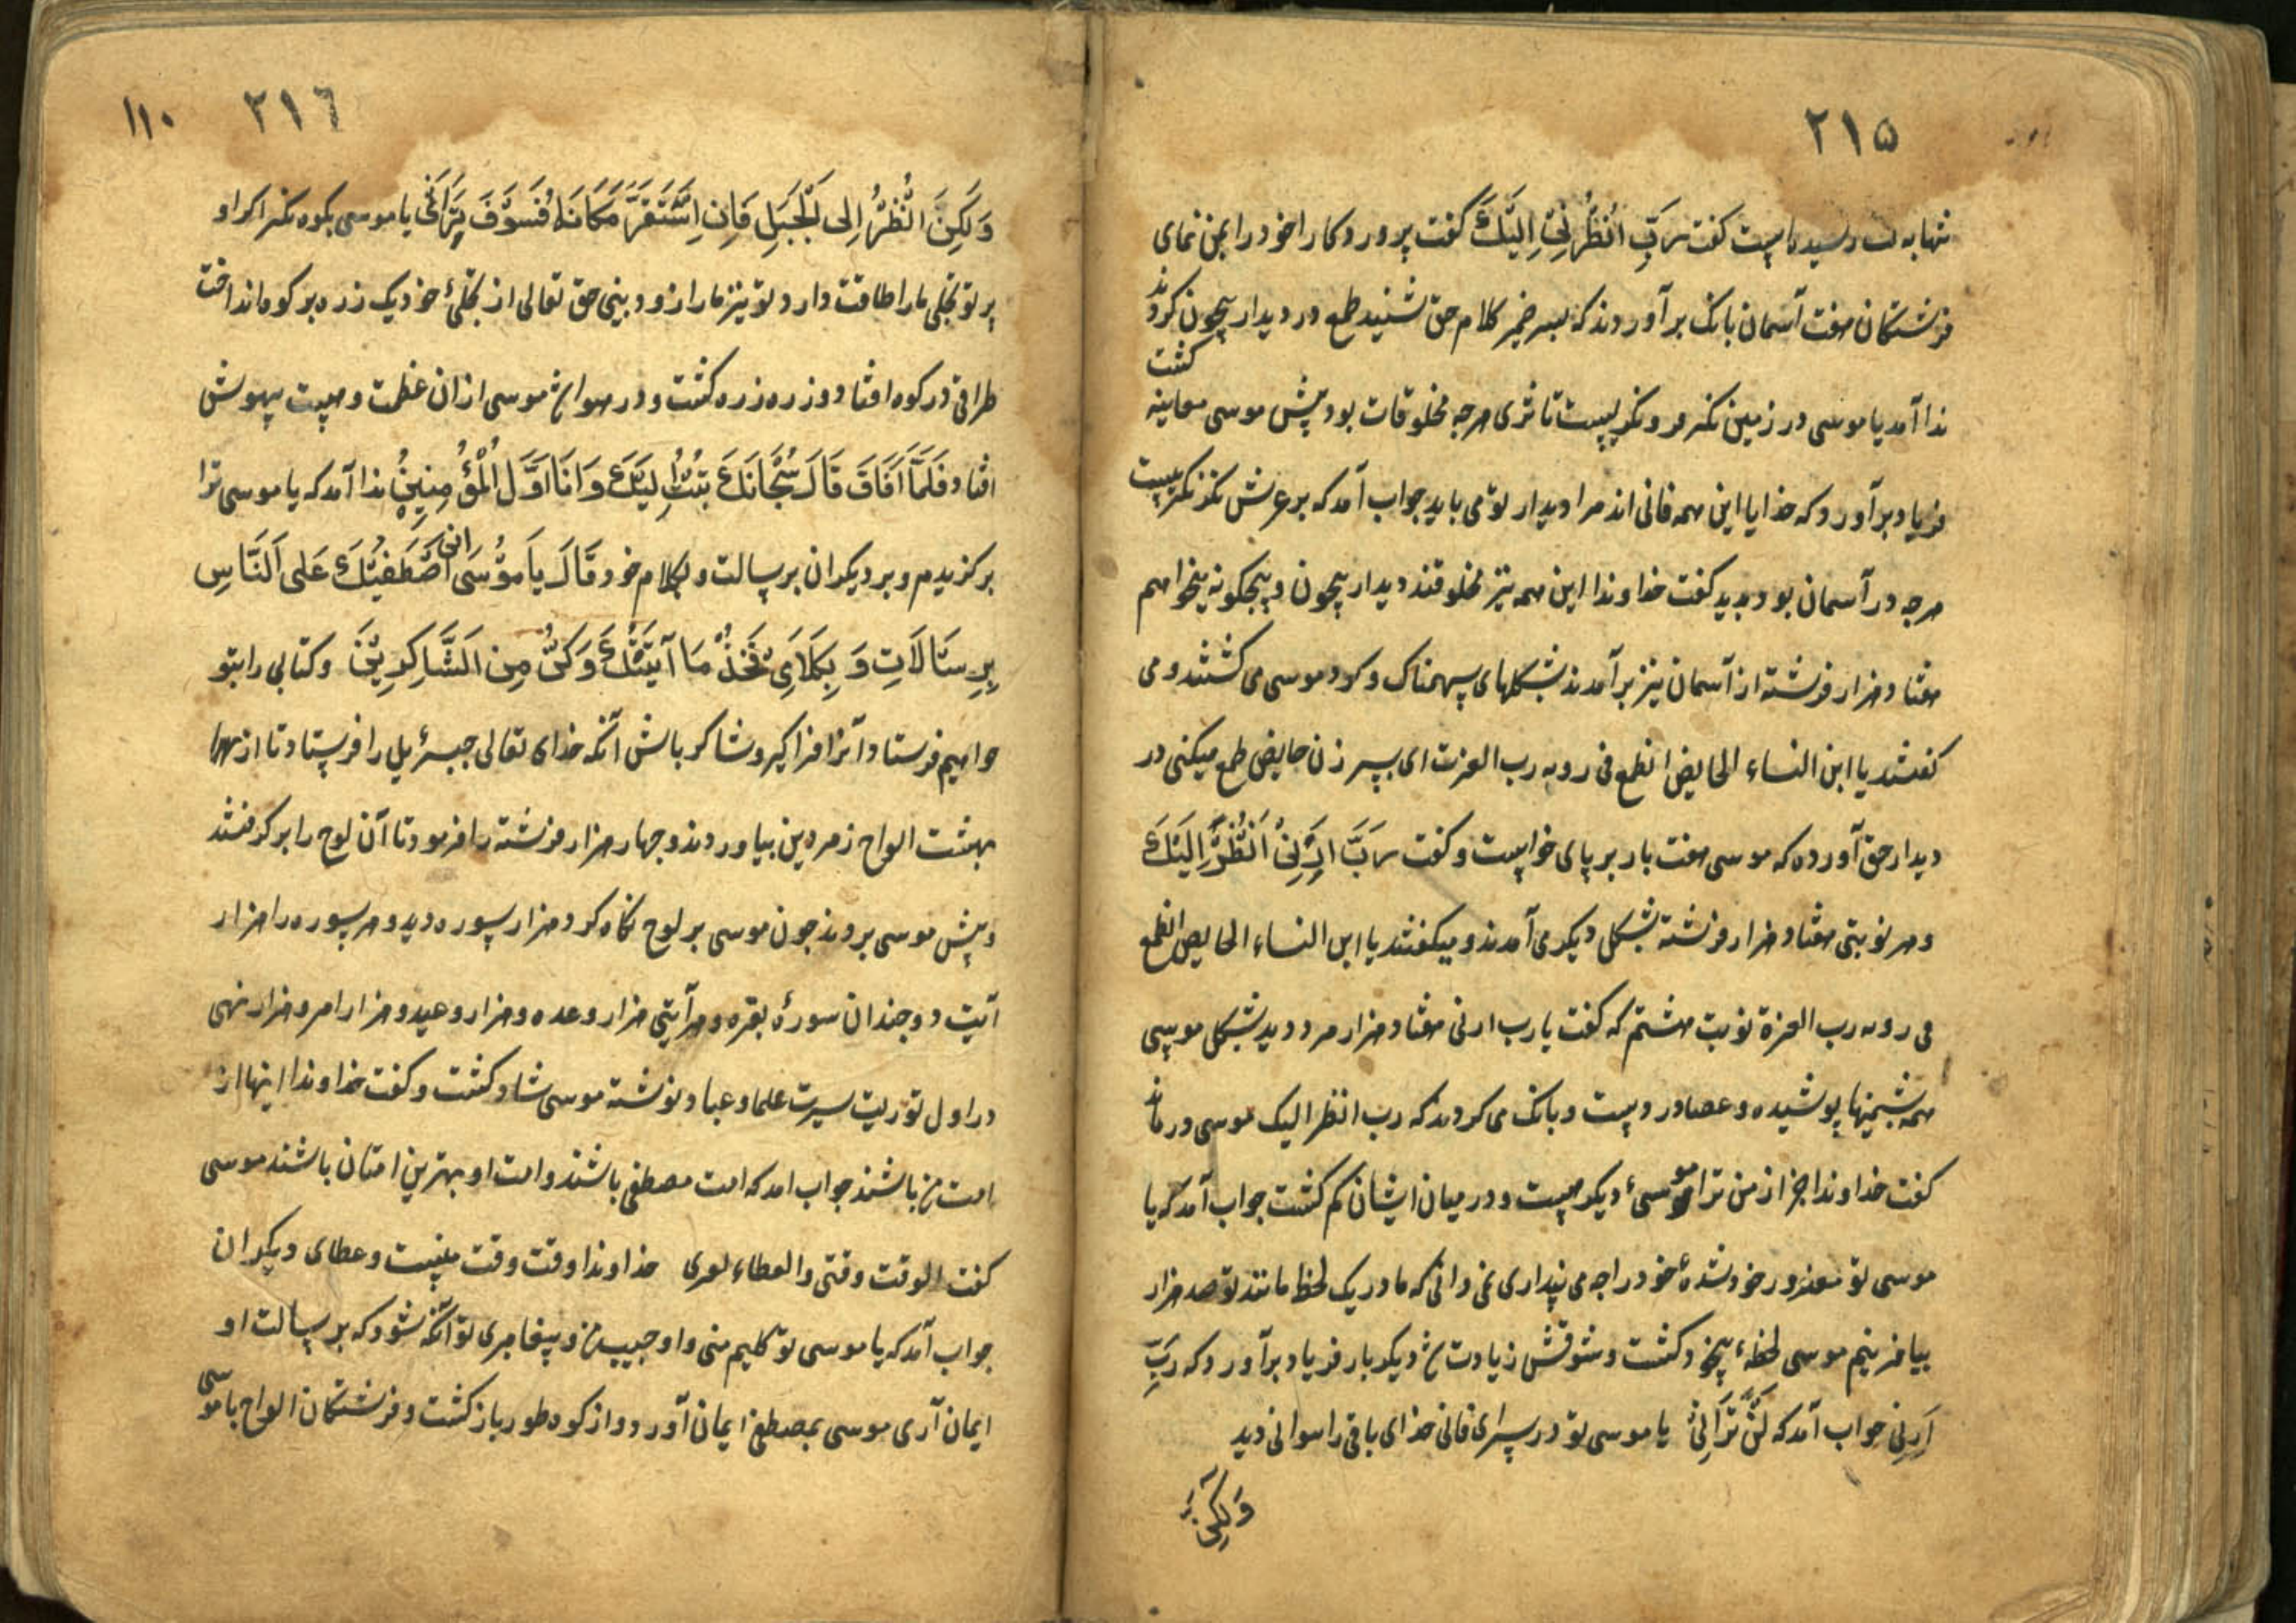 ۲۱۵
گفت رَبِّ اَنْظُرْنِي اِلَيْكَ گفت پروردکارا خود را بمن نمای
فرشتکان هفت آسمان بانک برآوردند که پسر ضمیر کلام حق شنید طمع در دیدار بیچون کردند
ندا آمد یا موسی در زمین نکر فرو نکریست تا ثری هرچه مخلوقات بود پیش موسی معاینه کشت
فریاد برآورد که خدایا این همه فانی اند مرا دیدار تو می باید جواب آمد که بر عرش نکر نکریست
هرچه در آسمان بود بدید کفت خداوندا این همه نیز مخلوقند دیدار بیچون و بیچکونه میخواهم
هفتاد هزار فرشته از آسمان نیز برآمدند بشکلهای سهمناک و کرد موسی می کشتند و می
کفتند یا ابن النساء الحایض اتطمع فی رویه رب العزت ای پسر زن حایض طمع میکنی در
دیدار حق آورده که موسی هفت بار بر پای خواست و کفت رَبِّ اَرِنِیْ اَنْظُرْ اِلَیْكَ
و هر نوبتی هفتاد هزار فرشته بشکل دیکر می آمدند و میکفتند یا ابن النساء الحایض اتطمع
فی رویه رب العزة نوبت هشتم که کفت یا رب ارنی هفتاد هزار مرد دید بشکل موسی
همه پشمینها پوشیده و عصا در دست و بانک می کردند که رب انظر الیک موسی درماند
کفت خداوندا جز از من ترا موسیٔ دیکر هست و در میان ایشان کم کشت جواب آمد که یا
موسی تو مغرور خود شدهٔ خود را چه می پنداری نمی دانی که ما در یک لحظ مانند تو صد هزار
بیافرینیم موسی لحظهٔ بیخود کشت و شوقش زیادت شد دیکر بار فریاد برآورد که رَبِّ
اَرِنِی جواب آمد که لَنْ تَرَانِیْ یا موسی تو در سرای فانی خدای باقی را نتوانی دید
وَلٰکِن
۲۱٦ ۱۱۰
وَلٰکِنَ انْظُرْ اِلی الْجَبَلِ فَاِنِ اسْتَقَرَّ مَکَانَهُ فَسَوْفَ تَرَانِی یا موسی بکوه نکر اکر او
پرتو تجلی ما را طاقت دارد تو نیز ما را زود بینی حق تعالی از تجلیٔ خود یک زره بر کوه انداخت
طراقی در کوه افتاد و زره زره کشت و در هوا شد موسی از ان عظمت و هیبت بیهوش
افتاد فَلَمَّا اَفَاقَ قَالَ سُبْحَانَكَ تُبْتُ اِلَیْكَ وَ اَنَا اَوَّلُ الْمُؤْمِنِینَ ندا آمد که یا موسی ترا
برکزیدم و بر دیکران برسالت و بکلام خود قَالَ یَا مُوْسَی اِنِّی اصْطَفَیْتُكَ عَلی النَّاسِ
بِرِسَالَاتِی وَ بِکَلَامِی فَخُذْ مَا آتَیْتُكَ وَ کُنْ مِنَ الشَّاکِرِیْنَ و کتابی را بتو
خواهیم فرستاد آنرا فراکیر و شاکر باش آنکه خدای تعالی جبرئیل را فرستاد تا از
بهشت الواح زمردین بیاوردند و چهار هزار فرشته را فرمود تا آن لوح را برکرفتند
و پیش موسی بردند چون موسی بر لوح نکاه کرد هزار سوره دید و هر سوره را هزار
آیت دو چندان سورهٔ بقره و هر آیتی هزار وعده و هزار وعید و هزار امر و هزار نهی
در اول توریت سیرت علما و عباد نوشته موسی شاد کشت و کفت خداوندا اینها از
امت من باشند جواب امد که امت مصطفی باشند و امت او بهترین امتان باشند موسی
کفت الوقت وقتی والعطاء لغیری خداوندا وقت وقت منست و عطای دیکران
جواب آمد که یا موسی تو کلیم منی و او حبیب من و پیغامبری تو آنکه شود که برسالت او
ایمان آری موسی بمصطفی ایمان آورد و از کوه طور باز کشت و فرشتکان الواح با موسی